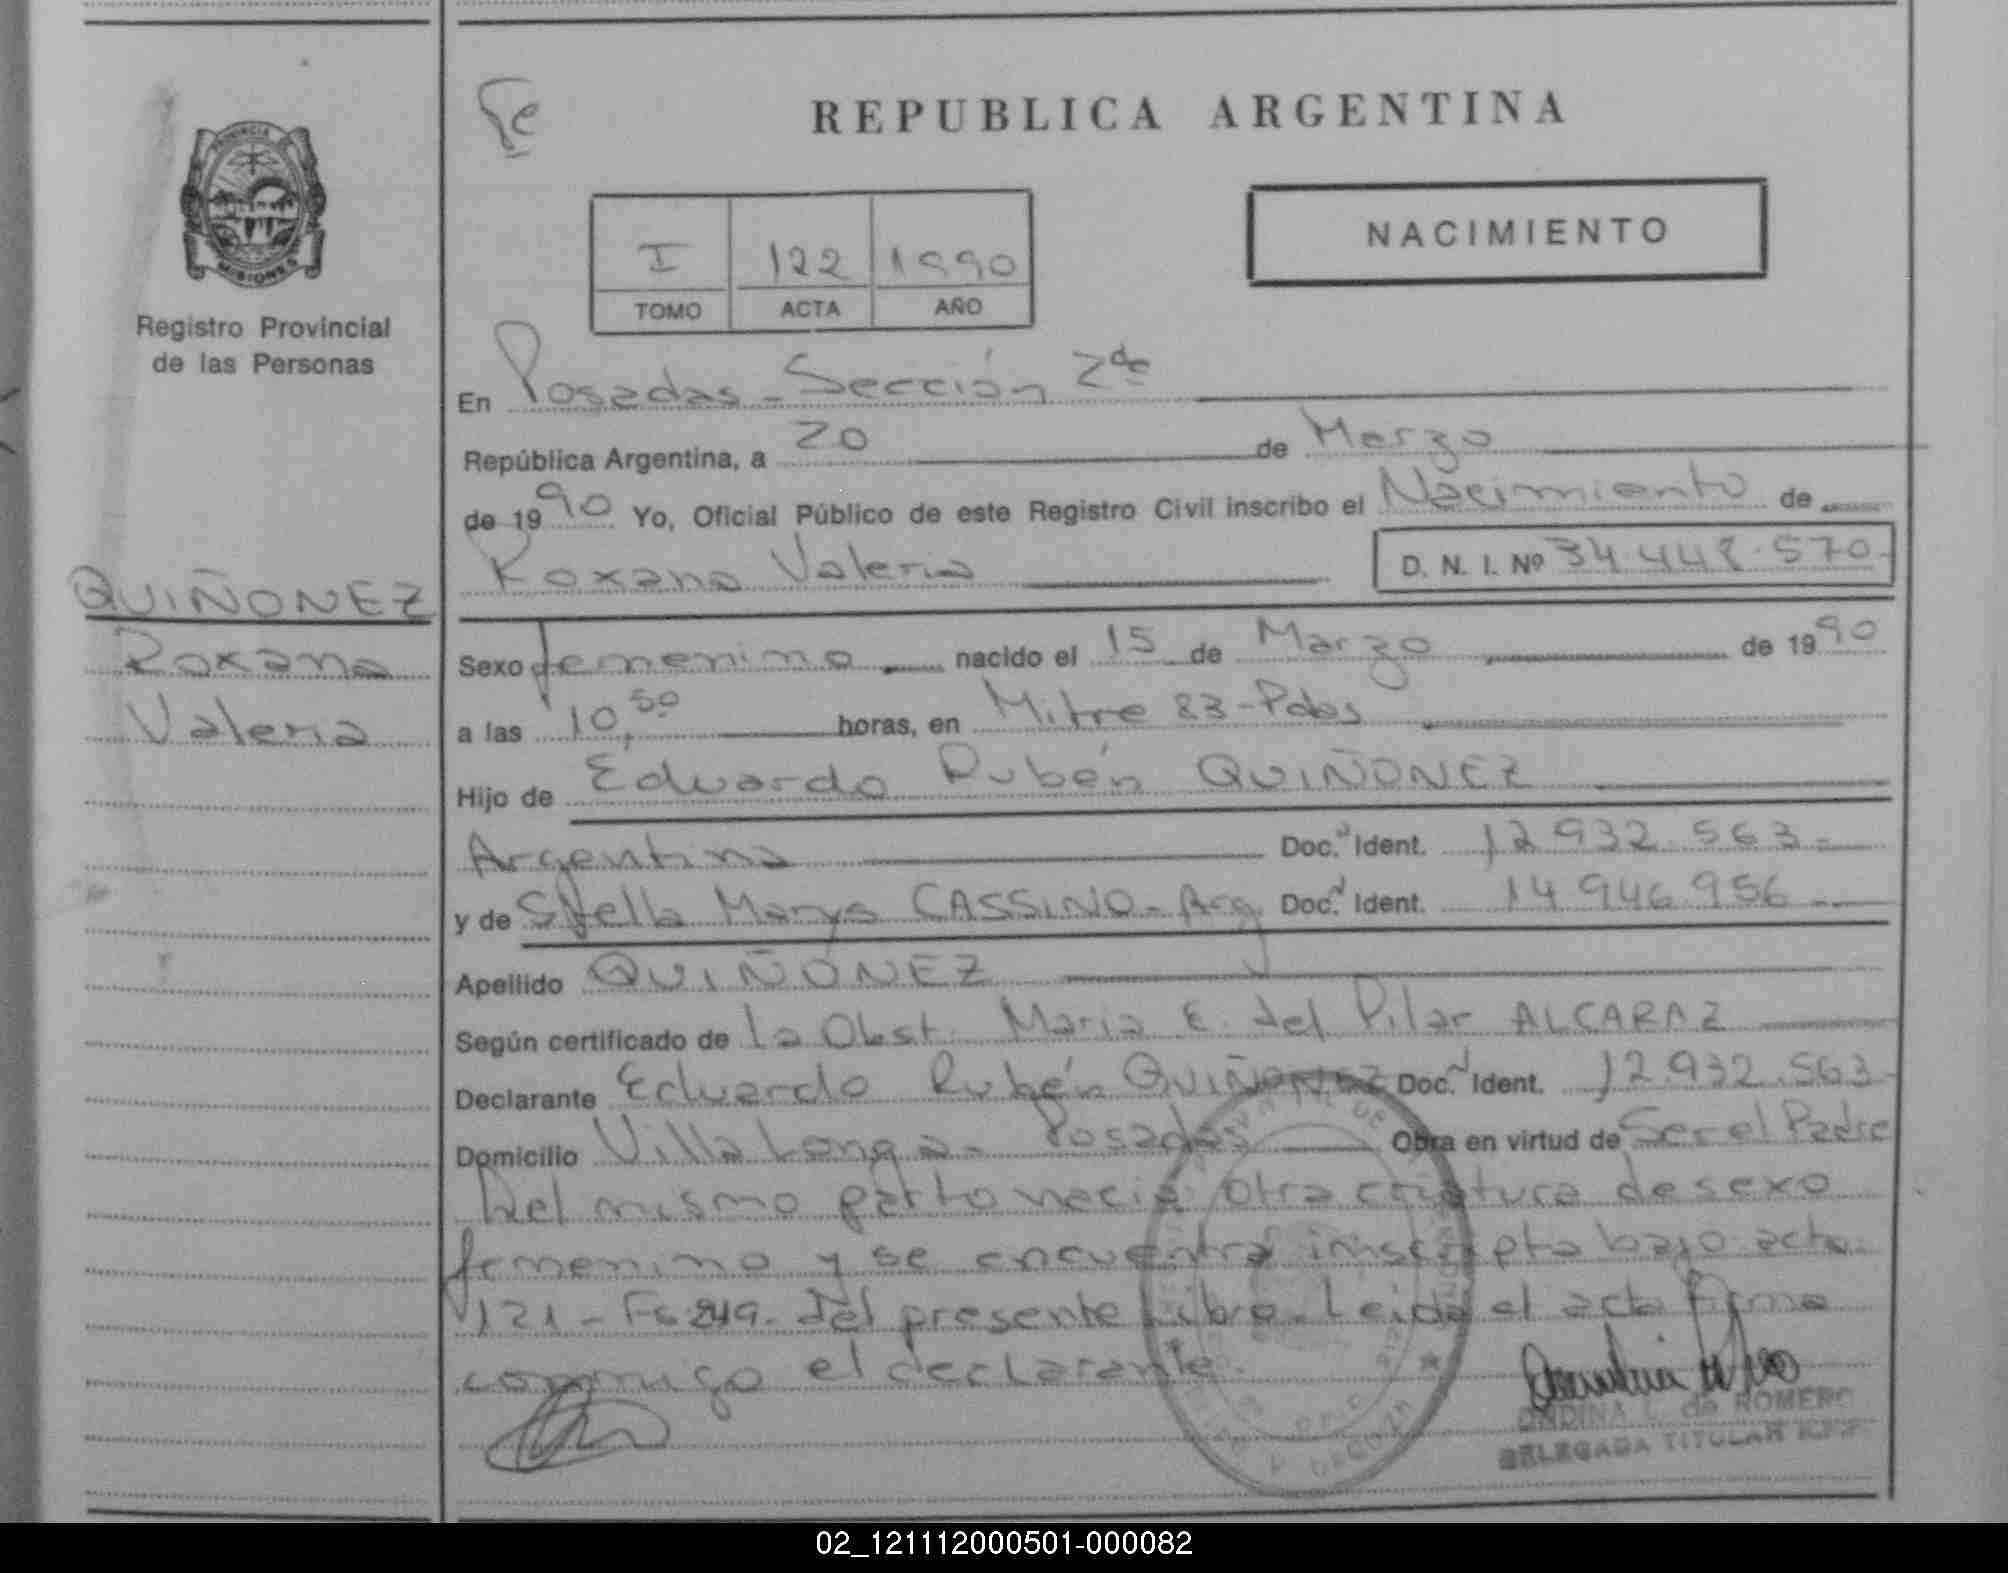 Fe
REPUBLICA ARGENTINA
NACIMIENTO
PROVINCIA
MISIONES
Registro Provincial
de las Personas
I 122 1990
TOMO ACTA AÑO
En Posadas - Sección 2da
República Argentina, a 20 de Marzo
de 1990 Yo, Oficial Público de este Registro Civil inscribo el Nacimiento de
Roxana Valeria D. N. I. Nº 34.448.570-
QUIÑONEZ
Roxana
Valeria
Sexo femenino nacido el 15 de Marzo de 1990
a las 10,50 horas, en Mitre 83-Pdas
Hijo de Eduardo Rubén QUIÑONEZ
Argentina Doc. Ident. 12.932.563-
y de Stella Marys CASSINO - Arg. Doc. Ident. 14.946.956
Apellido QUIÑONEZ
Según certificado de la Obst. Maria E. del Pilar ALCARAZ
Declarante Eduardo Rubén QUIÑONEZ Doc. Ident. 12.932.563-
Domicilio Villa Longa - Posadas Obra en virtud de Ser el Padre
Del mismo parto nació otra criatura de sexo
femenino y se encuentra inscripta bajo acta
121 - Fº 249 - del presente Libro - Leida el acta firma
conmigo el declarante.
ONDINA L. de ROMERO
DELEGADA TITULAR
02_121112000501-000082